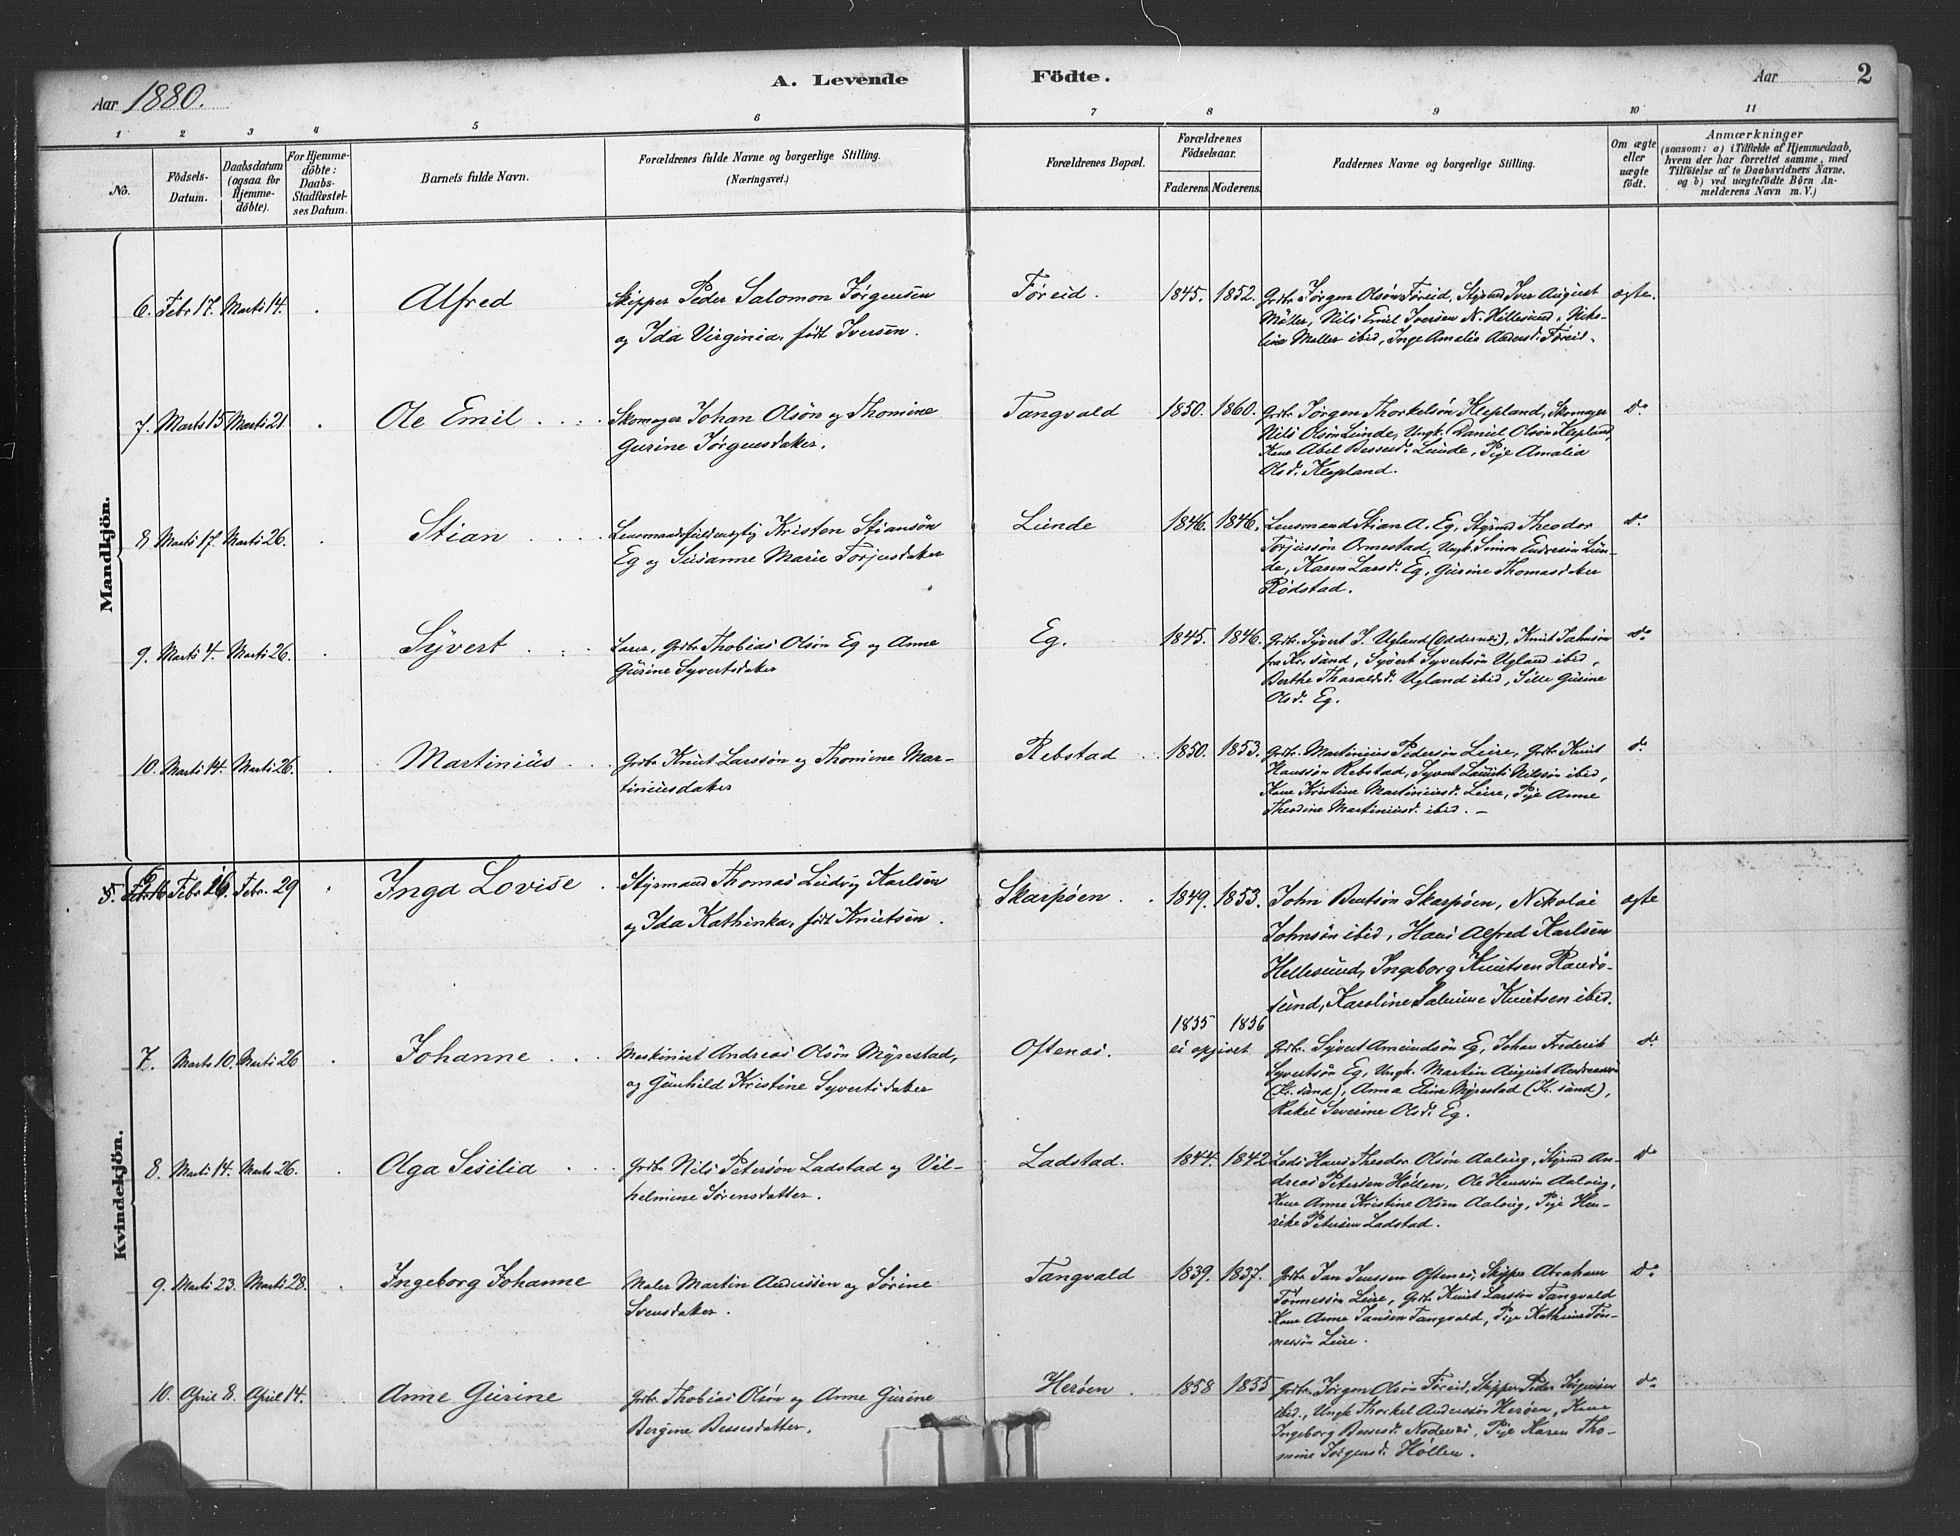 Aar 1880.
A. Levende Födte.
Aar 2
1 2 3 4 5 6 7 8 9 10 11
No.
Födsels-
Datum.
Daabsdatum
(ogsaa for
Hjemme-
döbte).
For Hjemme-
döbte:
Daabs-
Stadfæstel-
ses Datum.
Barnets fulde Navn.
Forældrenes fulde Navne og borgerlige Stilling.
(Næringsvei.)
Forældrenes Bopæl.
Forældrenes
Födselsaar.
Faderens. Moderens.
Faddernes Navne og borgerlige Stilling.
Om ægte
eller
uægte
födt.
Anmærkninger
(saasom: a) i Tilfælde af Hjemmedaab,
hvem der har forrettet samme, med
Tilföielse af to Daabsvidners Navne.
og b) ved uægtefödte Börn An-
melderens Navn m. V.)
Mandkjön.
6. Febr 17. Marts 14. Alfred
Skipper Peder Salomon Jørgensen
og Ida Virginia, født Iversen.
Føreid. 1845. 1852.
Grdbr. Jørgen Olsøn Føreid, Styrmd Iver August
Møller, Nils Emil Iversen N. Hellesund, Niko-
line Møller ibid, Inge Amalie Andersd. Føreid.
ægte.
7. Marts 15 Marts 21. Ole Emil
Skomager Johan Olsøn og Thomine
Gurine Jørgensdater.
Tangvald 1850. 1860.
Grdbr. Jørgen Thorkelsøn Klepland, Skomager
Nils Olsøn Lunde, Ungk. Daniel Olsøn Klepland,
Kone Abel Bessesd. Lunde, Pige Amalia
Olsd. Klepland.
do
8 Marts 17. Marts 26. Stian
Lensmandsfuldmægtig Kristen Stiansøn
Eg og Susanne Marie Torjusdater
Lunde 1846. 1846.
Lensmand Stian A. Eg, Styrmd Theodor
Torjussøn Ormestad, Ungk. Simon Endresøn Lun-
de, Karen Larsd. Eg, Gurine Thomasdater
Rødstad.
do
9. Marts 4. Marts 26. Syvert
Grdbr Thobias Olsøn Eg og Anne
Gurine Syvertsdater
Eg. 1845. 1846.
Grdbr. Syvert J. Ugland (Oddernes), Knut Jahnsøn
fra Kr.sand, Syvert Syvertsøn Ugland ibid,
Berthe Tharaldsd. Ugland ibid, Sille Gurine
Olsd. Eg.
do
10. Marts 14. Marts 26. Martinius
Grdbr Knut Larssøn og Thomine Mar-
tiniusdater
Rebstad 1850. 1853.
Grdbr. Martinius Pedersøn Leire, Grdbr Knut
Hanssøn Rebstad, Syvert Laurits Nilssøn ibid,
Kone Kristine Martiniusd. Leire, Pige Anne
Theodine Martiniusd. ibid. —
do
Kvindekjön.
6
5. Feb. 16 Febr 26. Febr. 29 Inga Lovise
Styrmand Thomas Ludvig Karlsen
og Ida Kathinka, født Knutsen.
Skarpøen. 1849. 1853.
John Bentsøn Skarpøen, Nikolai
Johnsøn ibid, Hans Alfred Karlsen
Hellesund, Ingeborg Knutsen Randø-
sund, Karoline Salmine Knutsen ibid.
ægte
7. Marts 10. Marts 26 Johanne
Maskinist Andreas Olsøn Myrestad,
og Gunhild Kristine Syvertsdater
Oftenæs. 1835 1836
ei opgivet
Grdbr. Syvert Amundsøn Eg, Johan Frederik
Syvertsøn Eg, Ungk. Martin August Andreassøn
(Kr. sand), Anna Eline Myrestad (Kr. sand),
Rakel Severine Olsd. Eg.
do
8. Marts 14. Marts 26. Olga Sesilia
Grdbr Nils Petersøn Ladstad og Vil-
helmine Sørensdatter.
Ladstad. 1844. 1842
Lods Hans Theodor Olsøn Aalvig, Styrmd An-
dreas Petersen Høllen, Ole Hanssøn Aalvig,
Kone Anne Kristine Olsen Aalvig, Pige Hen-
rike Petersen Ladstad.
do
9. Marts 23. Marts 28. Ingeborg Johanne
Maler Martin Anderssen og Sørine
Svensdater.
Tangvald 1839. 1837.
Grdbr Jan Jenssen Oftenes, Skipper Abraham
Tønnessøn Leire, Grdbr Knut Larssøn Tangvald
Kone Anne Jansen Tangvald, Pige Kathrine Tøn-
nessøn Leire.
do
10. April 8. April 14. Anne Gurine
Grdbr Thobias Olsøn og Anne Gurine
Bergine Bessesdatter.
Herøen. 1858 1835
Grdbr. Jørgen Olsøn Føreid, Skipper Peder Jørgensen
ibid., Ungk Thorkel Anderssøn Herøen, Kone
Ingeborg Bessesd. Nodenes, Pige Karen Tho-
mine Jørgensd. Høllen.
do